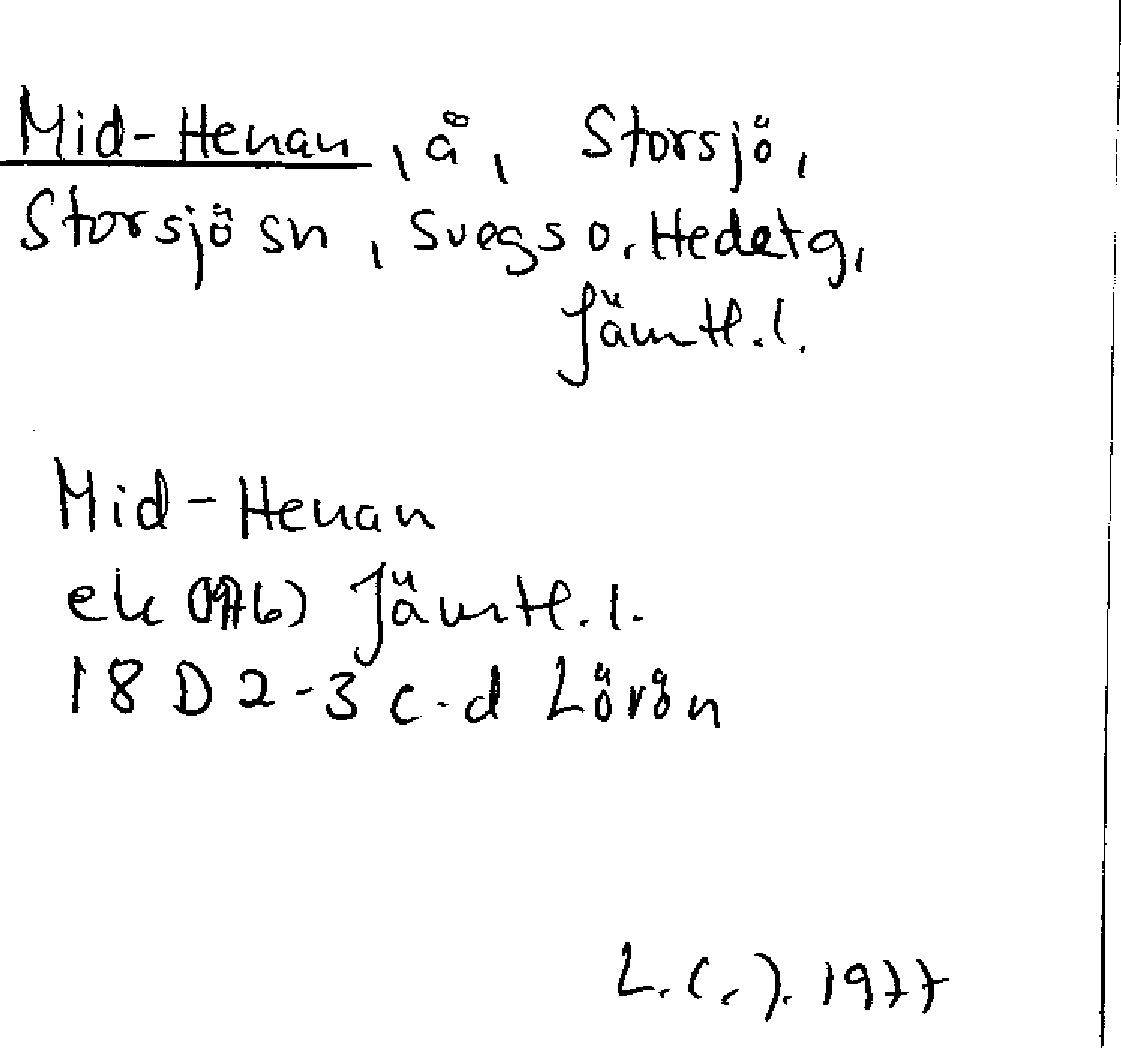 Mid-Henan, å, Storsjö,
Storsjö sn, Svegs o. Hede tg,
Jämtl. l.
Mid-Henan
ek (1976) Jämtl. l.
18 D 2-3 c-d Lörön
1977